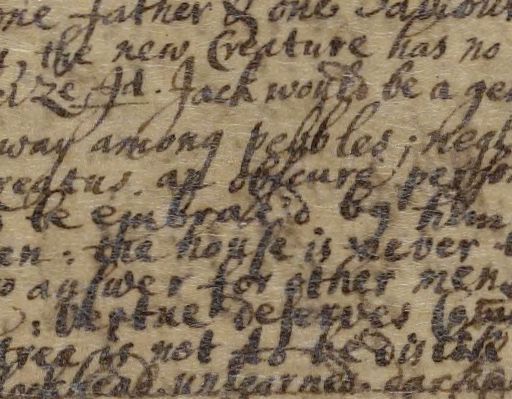 one father & one Saviour
the new Creature has no
Jack would be a gen
way among pebbles; negl
an obscure person
be embrac'd by him
en: the house is never
o answer for other mens
: Vertue deserves Com
is not to be dislik
unlearned.